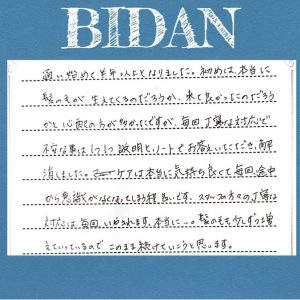 BIDAN
通い始めて半年以上となりました。初めは、本当に
髪の毛が生えてくるのだろうか、来て良かったのだろう
かと心配の方が多かったですが、毎回丁寧な対応で
不安な事は1つ1つ説明とノートでお答えいただき、解
消しました。ケアは本当に気持ち良くて毎回、途中
から意識がなくなってしまう程、良いです。スタッフの方々の丁寧な
対応には、毎回、いやされます。本当に…。髪の毛も少しずつ増
えていっているので、このまま続けていこうと思います。